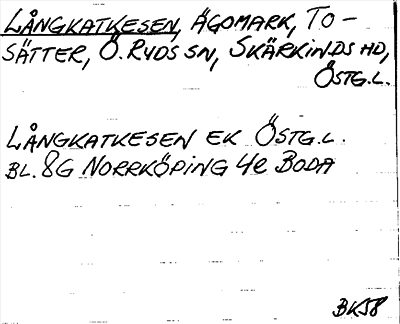 LÅNGKATKESEN, ÄGOMARK, TO-
SÄTTER, Ö. RYDS SN, SKÄRKINDS HD,
ÖSTG.L.
LÅNGKATKESEN EK ÖSTG.L.
BL. 8G NORRKÖPING 4e BODA
BK58